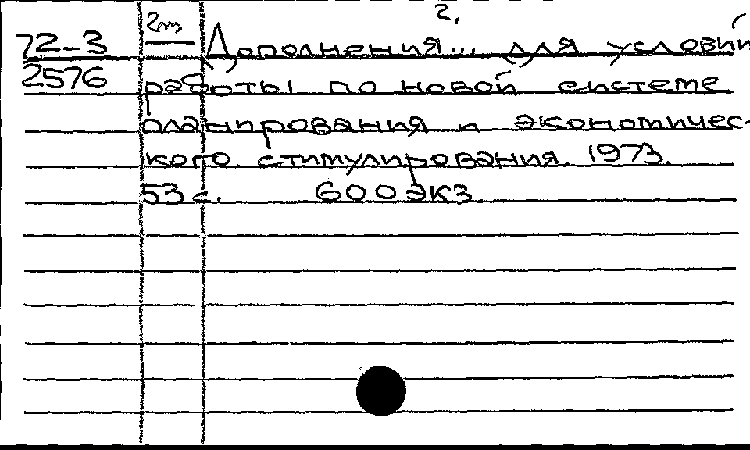 2.
72-3 2т Дополнения... для условий
2576 работы по новой системе
планирования и экономичес-
кого стимулирования. 1973.
53 с. 600 экз.